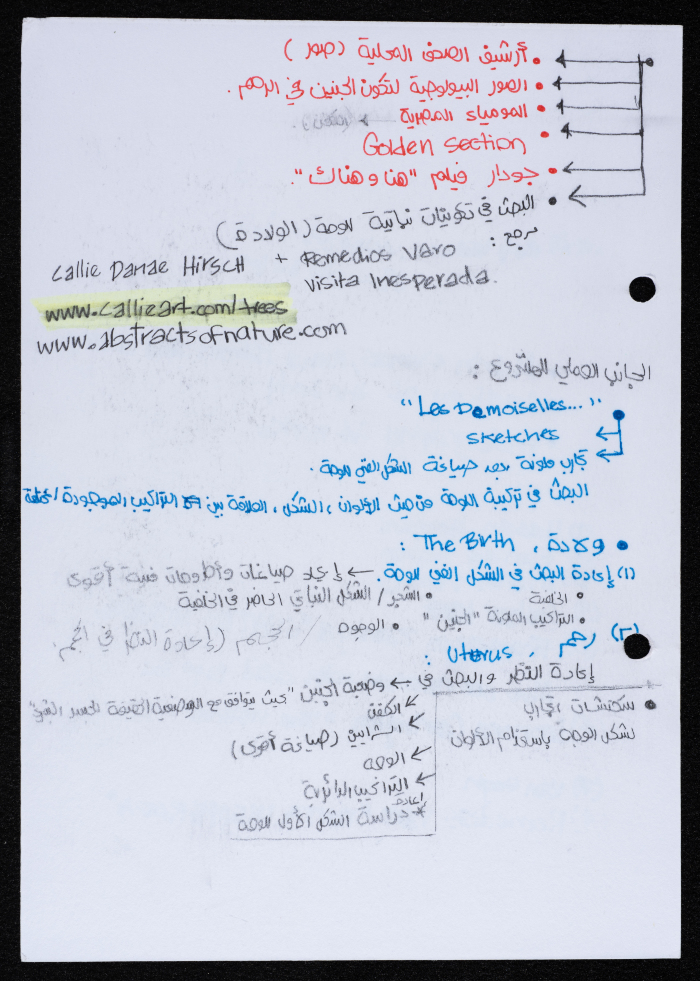 • أرشيف الصحف المحلية (صور)
• الصور البيولوجية لتكون الجنين في الرحم.
• المومياء المصرية
• Golden section
• جودار فيلم "هنا وهناك".
• البحث في تكوينات نباتية للوحة (الولادة)
مرجع:
Callie Danae Hirsch + Remedios Varo
Visita Inesperada.
www.callieart.com/trees
www.abstractsofnature.com
الجانب العملي للمشروع:
"Les Demoiselles..."
sketches
تجارب ملونة بعد صياغة الشكل الفني للوحة.
البحث في تركيبة اللوحة من حيث الألوان، الشكل، العلاقة بين التراكيب الموجودة
• ولادة، The Birth:
(١) إعادة البحث في الشكل الفني للوحة. ← إيجاد صياغات وأطروحات فنية أقوى
• الخلفية • الشجر / الشكل النباتي الحاضر في الخلفية
• التراكيب الملونة "الجنين" • الوجوه / الحجم (إعادة النظر في الحجم.
(٢) رحم، Uterus:
إعادة النظر والبحث في ← وضعية الجنين "بحيث يتوافق مع الوضعية الحقيقة للجسد البشري"
← الكفة
← الشرايين (صياغة أقوى)
← الوجه
← التراكيب الدائرية
* إعادة دراسة الشكل الأول للوحة
• سكتشات تجارب
لشكل الوجه باستخدام الألوان